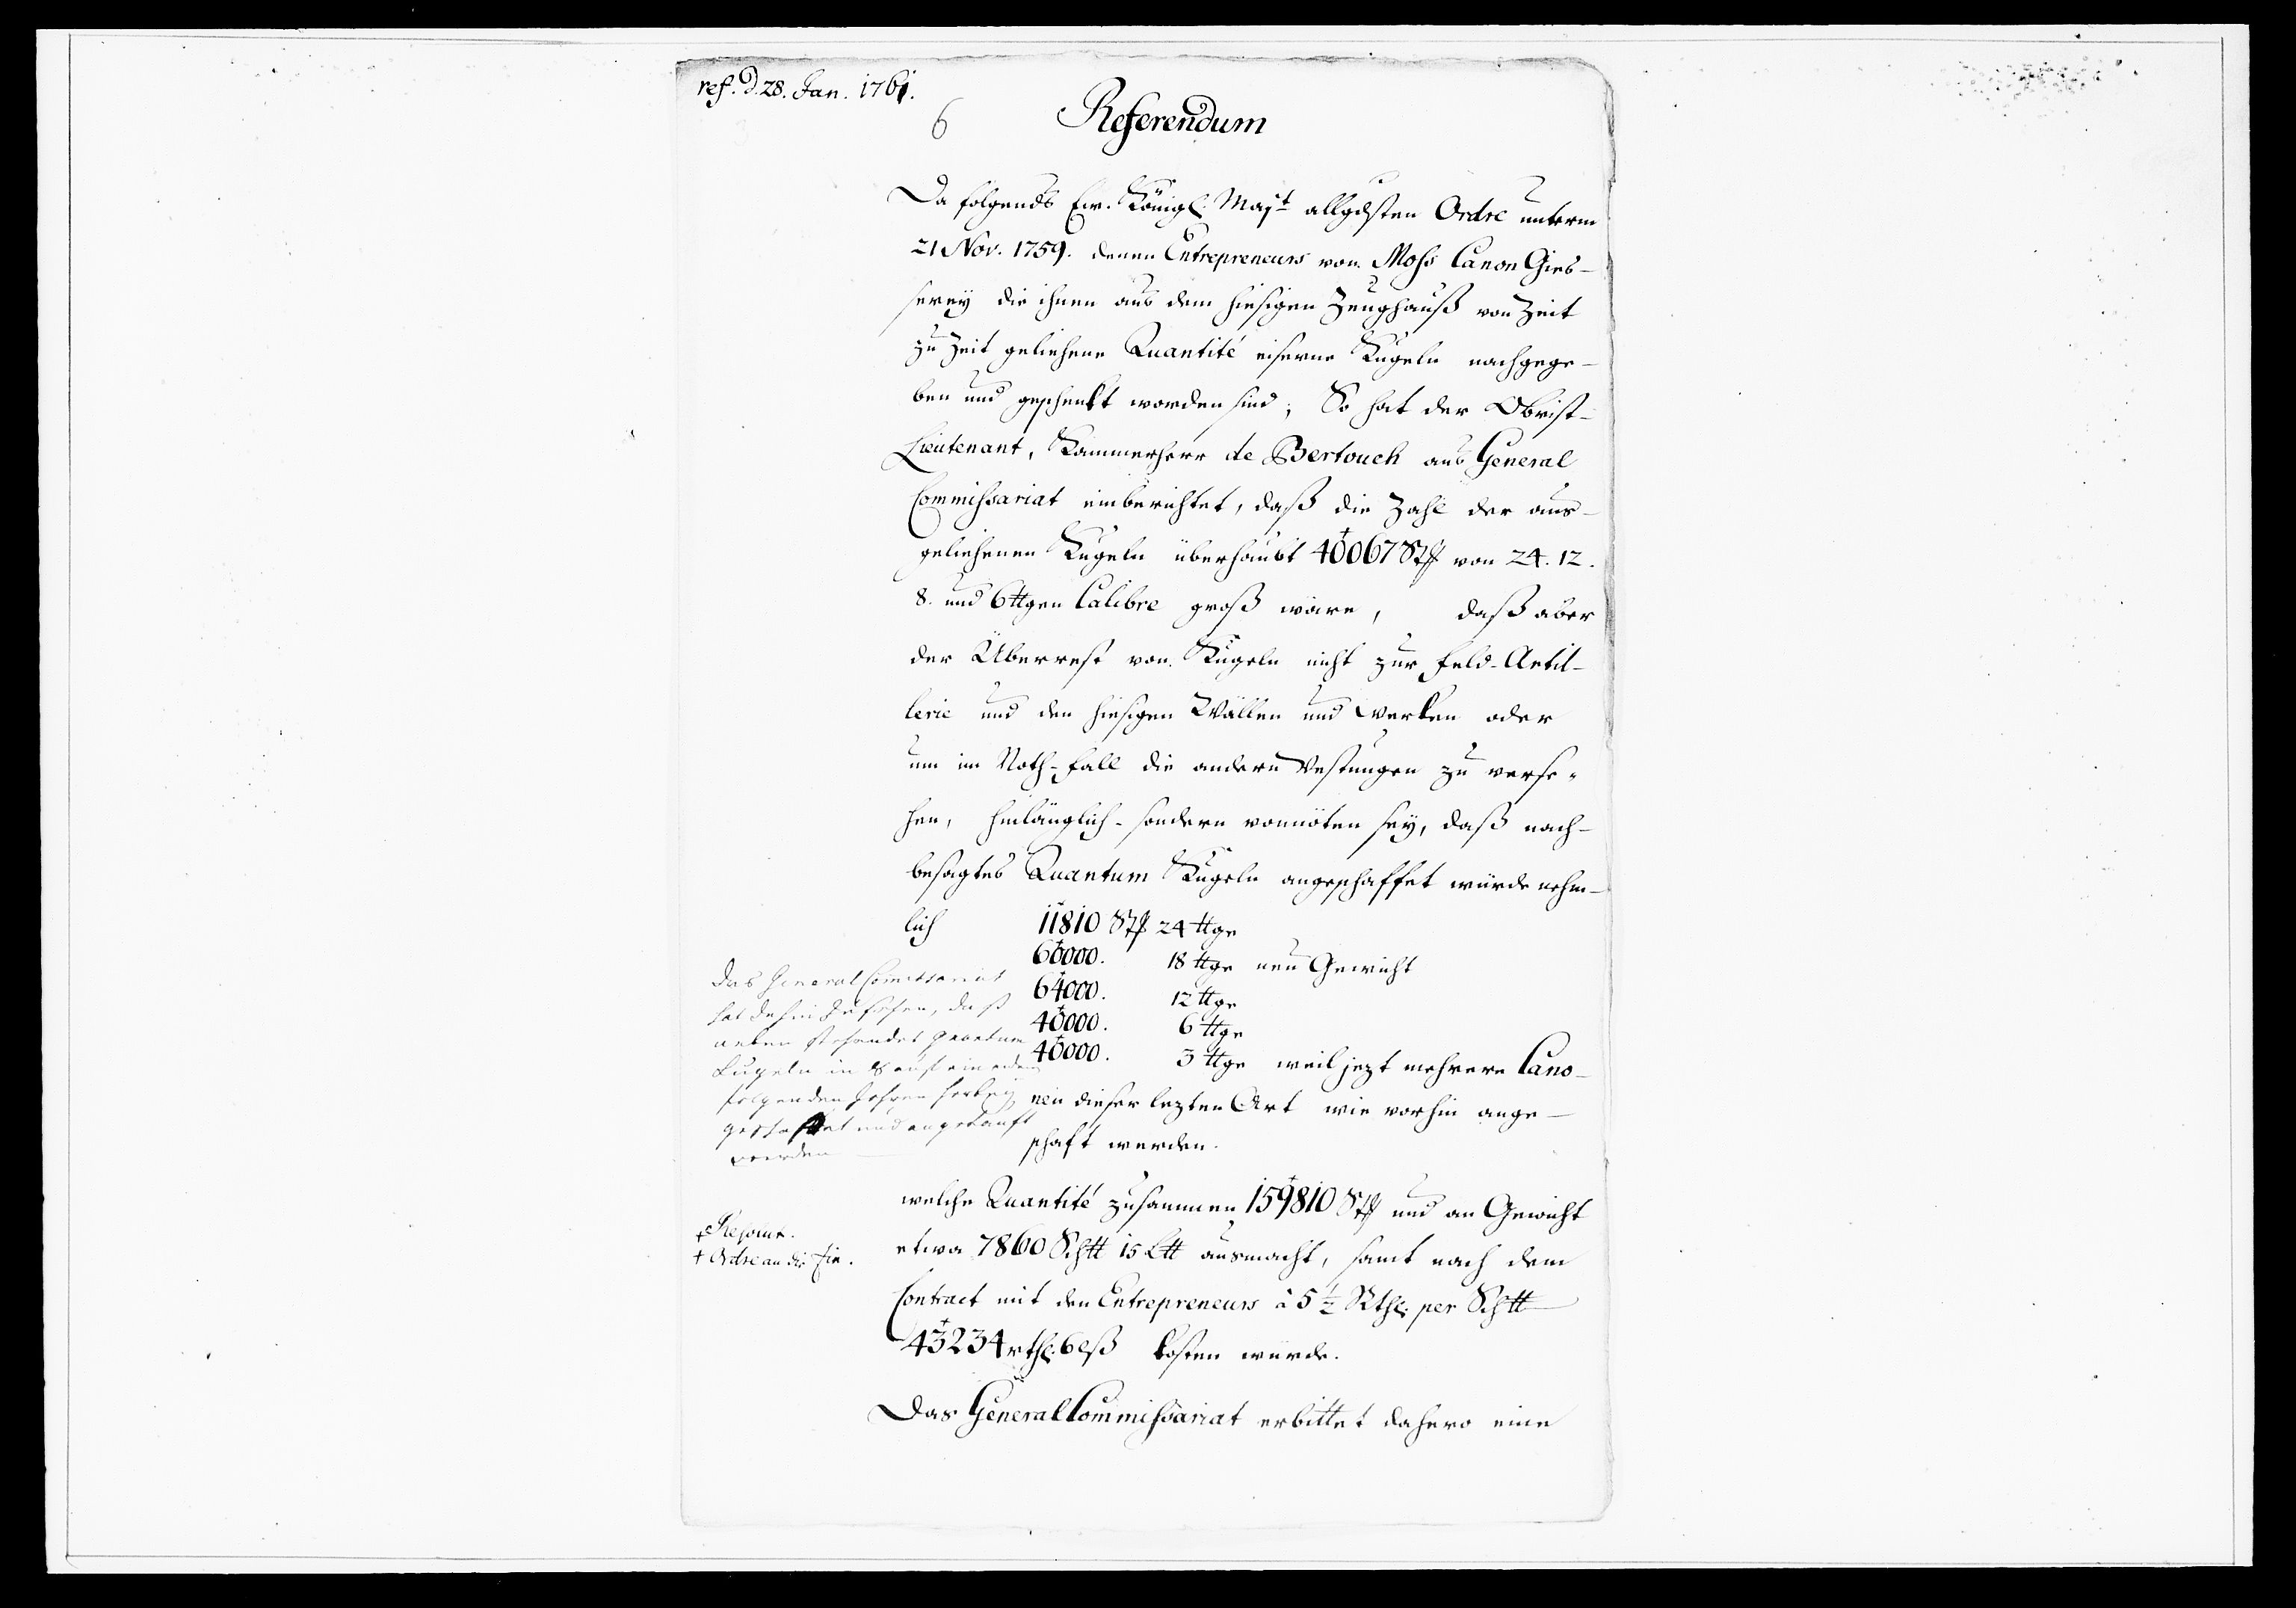 ref. d. 28. Jan. 1761.
6
Referendum
Da folgends Ew. Königl. Majt allgdsten Ordre unterm
21 Nov. 1759. denen Entrepreneurs von Moss Canon Gies-
serey die ihnen aus dem hiesigen Zeughauß von Zeit
zu Zeit geliehene Quantité eiserne Kugeln nachgege-
ben und geschenkt worden sind; So hat der Obrist-
Lieutenant, Kammerherr de Bertouch ans General
Commissariat einberichtet, daß die Zahl der aus-
geliehenen Kugeln überhaubt 40067 Stk von 24. 12.
8. und 6 ℔gen Calibre groß wäre, daß aber
der Überrest von Kugeln nicht zur Feld-Artil-
lerie und den hiesigen Wällen und Werken oder
um im Noth-Fall die andern Vestungen zu verse-
hen, hinlänglich- sondern vonnöten sey, daß nach-
besagtes Quantum Kugeln angeschaffet würde nehm-
lich 11810 Stk 24 ℔ge
60000. 18 ℔ge neu Gewicht
64000. 12 ℔ge
40000. 6 ℔ge
40000. 3 ℔ge weil jezt mehrere Cano-
nen dieser lezten Art wie vorhin ange-
schaft werden.
Das General Commissariat
hat dahin zu sehen, daß
neben stehendes Quantum
Kugeln in 8 auf einander
folgenden Jahren herbey
geschaffet und angekauft
werden
welche Quantité zusammen 159810 Stk und an Gewicht
etwa 7860 Sch℔ 15 L℔ ausmacht, samt nach dem
Contract mit den Entrepreneurs à 5 1/2 Rthl. per Sch℔
43234 rthl. 6 lß kosten würde.
+ Resolut.
+ Ordre an die Fin.
Das General Commissariat erbittet dahero eine